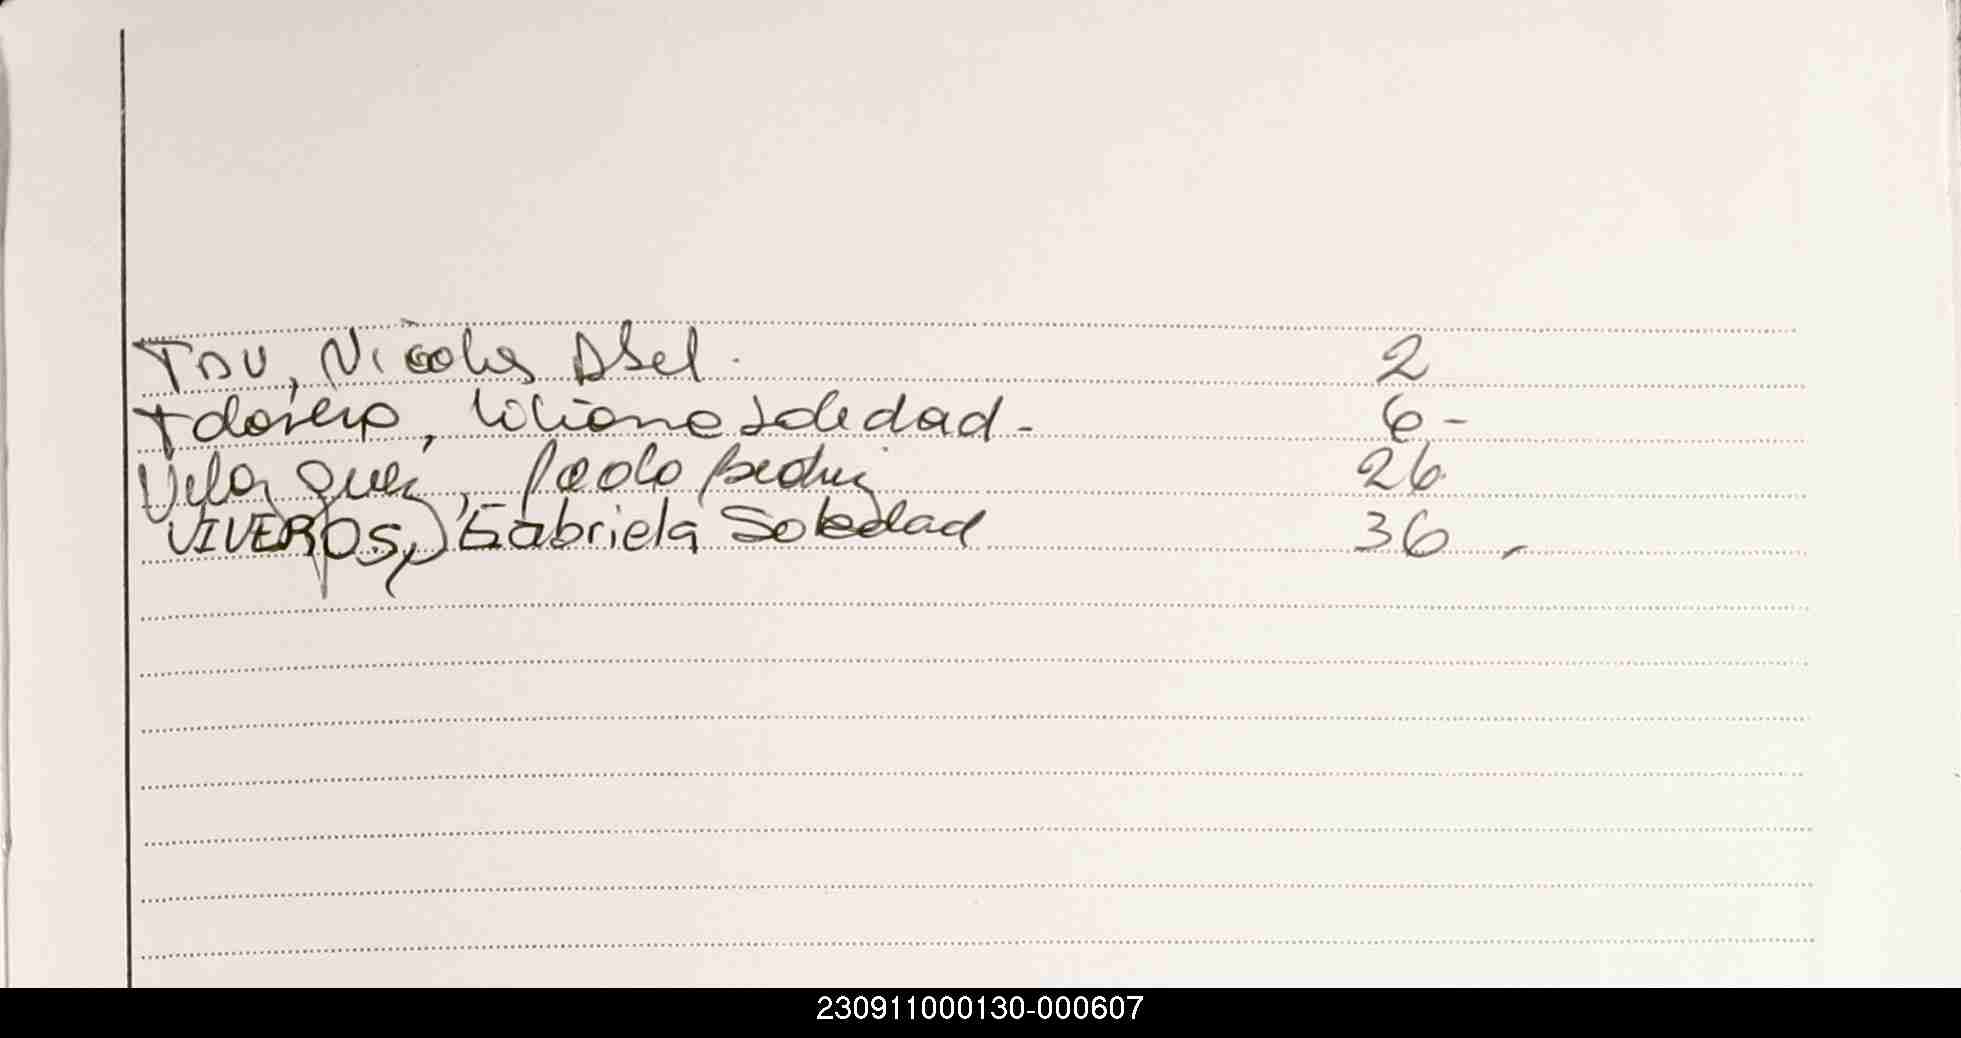 Tau, Nicolas Abel.      2
Liliana Soledad.      6-
Velazquez, Paola Beatriz      26
VIVEROS, Gabriela Soledad      36
230911000130-000607